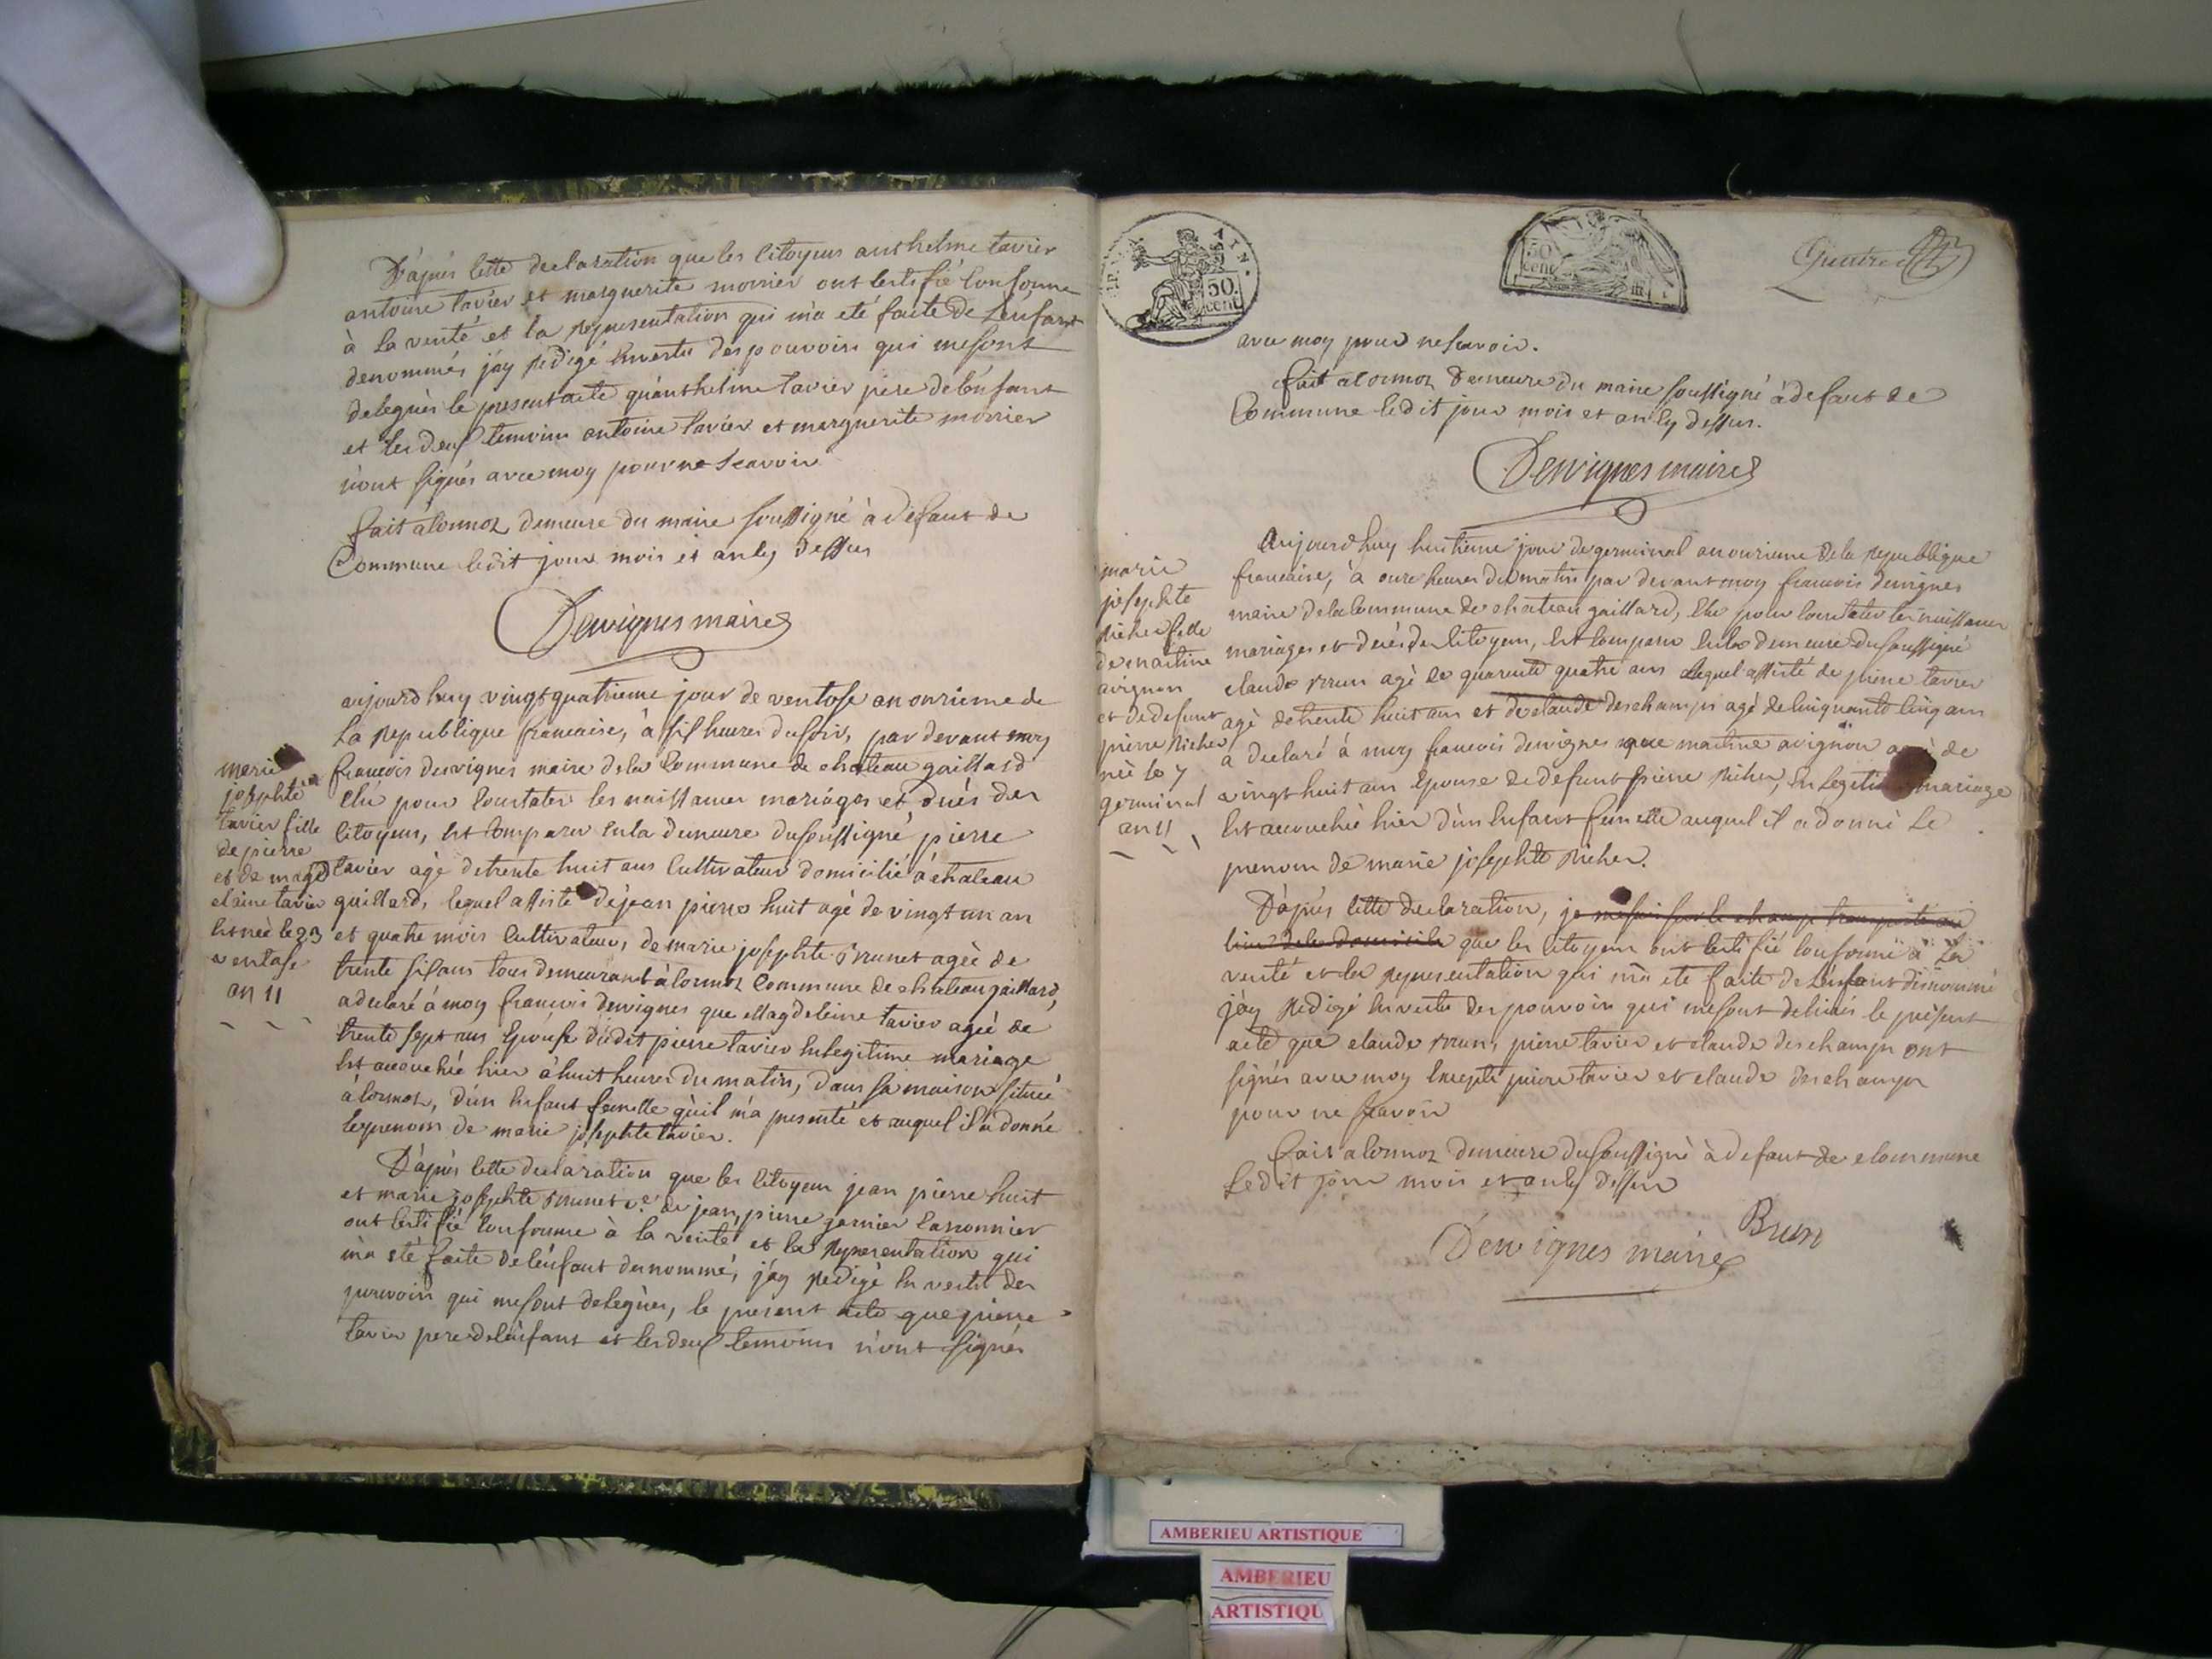 D'apres cette declaration que les citoyens anthelme tavier
antoine tavier et marguerite morrier ont certifié conforme
à la verité et la representation qui m'a eté faite de L'enfant
denommés j'ay redigé en vertu des pouvoirs qui me sont
delegués le present acte qu'anthelme tavier pere de l'enfant
et les deux temoins antoine tavier et marguerite morrier
n'ont signés avec moy pour ne scavoir
fait à cormoz demeure du maire soussigné à defaut de
Commune ledit jour mois et an cy dessus
Dervignes maire
marie
josephte
tavier fille
de pierre
et de magd
elaine tavier
est née le 23
ventose
an 11
aujourd huy vingt quatrieme jour de ventose an onzieme de
La republique francaise, à six heures du soir, par devant moy
françois dervignes maire dela Commune de chateau gaillard
elu pour constater les naissances mariages et decés des
citoyens, est comparu en la demeure du soussigné pierre
tavier agé de trente huit ans cultivateur domicilié à chateau
gaillard, lequel assisté de jean pierre huit agé de vingt un an
et quatre mois cultivateur, de marie josephte brunet agée de
trente six ans tous demeurant à cormoz Commune de chateau gaillard,
a declaré à moy francois dervignes que Magdeleine tavier agée de
trente sept ans epouse dudit pierre tavier en legitime mariage
est accouchée hier à huit heures du matin, dans sa maison située
à cormoz, d'un enfant femelle qu'il m'a presenté et auquel il a donné
le prenom de marie josephte tavier.
D'apres cette declaration que les citoyens jean pierre huit
et marie josephte brunet ve. de jean pierre garnier
ont certifié conforme à la verité et la representation qui
m'a eté faite de l'enfant denommé, j'ay redigé en vertu des
pouvoirs qui me sont delegués, le present acte que pierre
tavier pere de l'enfant et les deux temoins n'ont signés
AIN.
50
cent
50
cent
Quatre
avec moy pour ne scavoir.
fait a cormoz Demeure du maire soussigné à defaut de
Commune ledit jour mois et an cy dessus.
Dervignes maire
marie
josephte
richer fille
de martine
avignon
et de defunt
pierre richer
née le 7
germinal
an 11
Aujourd huy huitieme jour de germinal an onzieme de la republique
francaise, à onze heures du matin par devant moy francois dervignes
maire dela Commune de chateau gaillard, elu pour constater les naissances
mariages et decés des citoyens, est comparu en la demeure du soussigné
claude brun agé de quarente quatre ans lequel assisté de pierre tavier
agé de trente huit ans et de claude deschamps agé de cinquante cinq ans
a declaré à moy francois dervignes que martine avignon de
vingt huit ans epouse de defunt pierre richer, en mariage
est accouchée hier d'un enfant femelle auquel il a donné le
prenom de marie josephte richer.
D'apres cette declaration, je me suis sur le champ transporté au
lieu de la domicile que les citoyens ont certifié conforme à la
verité et la representation qui m'a eté faite de L'enfant denommé
j'ay redigé en vertu des pouvoirs qui me sont le present
acte que claude brun, pierre tavier et claude deschamps ont
signés avec moy excepté pierre tavier et claude deschamps
pour ne scavoir
fait a cormoz demeure du soussigné à defaut de commune
Ledit jour mois et an cy dessus
Brun
Dervignes maire
AMBERIEU ARTISTIQUE
AMBERIEU
ARTISTIQU